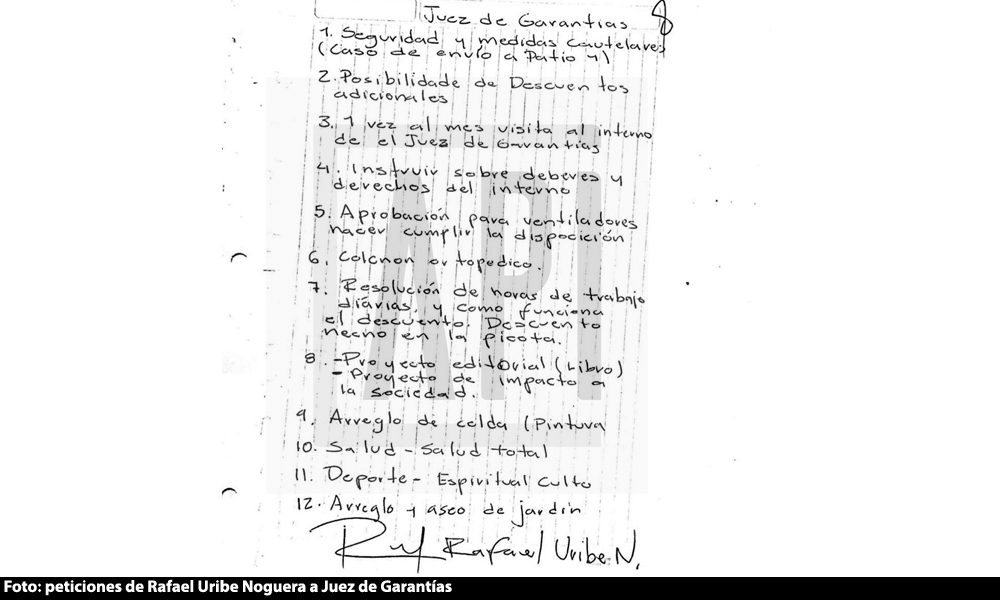 Juez de Garantías 8
1. Seguridad y medidas cautelares
(Caso de envío a Patio 4)
2. Posibilidade de Descuentos
adicionales
3. 1 vez al mes visita al interno
de el Juez de Garantías
4. Instruir sobre deberes y
derechos del interno
5. Aprobación para ventiladores
hacer cumplir la disposición
6. Colchon ortopedico.
7. Resolución de horas de trabajo
diárias, y como funciona
el descuento. Descuento
hecho en la picota.
8. -Proyecto editorial (Libro)
- Proyecto de impacto a
la sociedad.
9. Arreglo de celda (Pintura
10. Salud - Salud total
11. Deporte - Espiritual culto
12. Arreglo y aseo de jardín
Rafael Uribe N.
API
Foto: peticiones de Rafael Uribe Noguera a Juez de Garantías